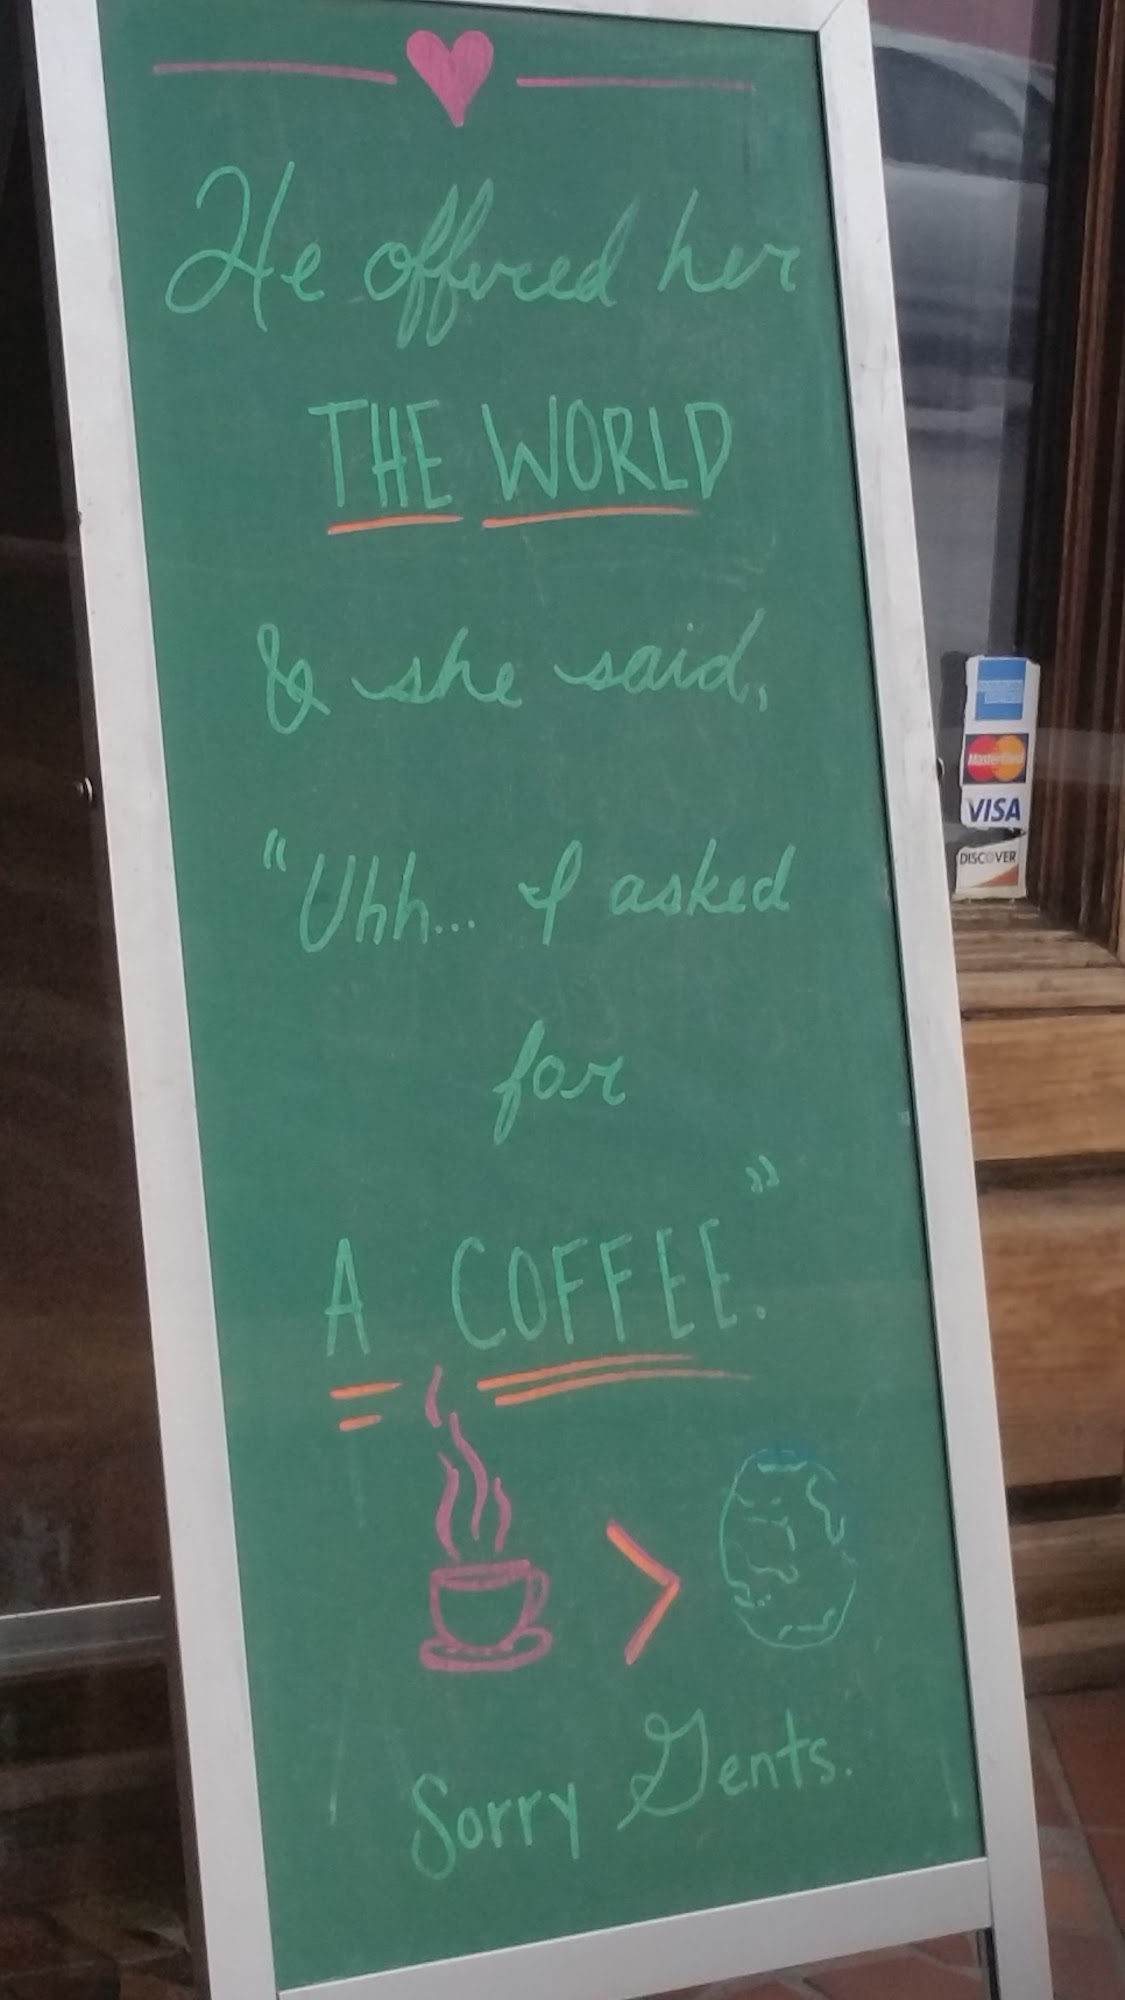 He offered her
THE WORLD
& she said,
"Uhh... I asked
for
A COFFEE."
>
Sorry Gents.
MasterCard
VISA
DISCOVER